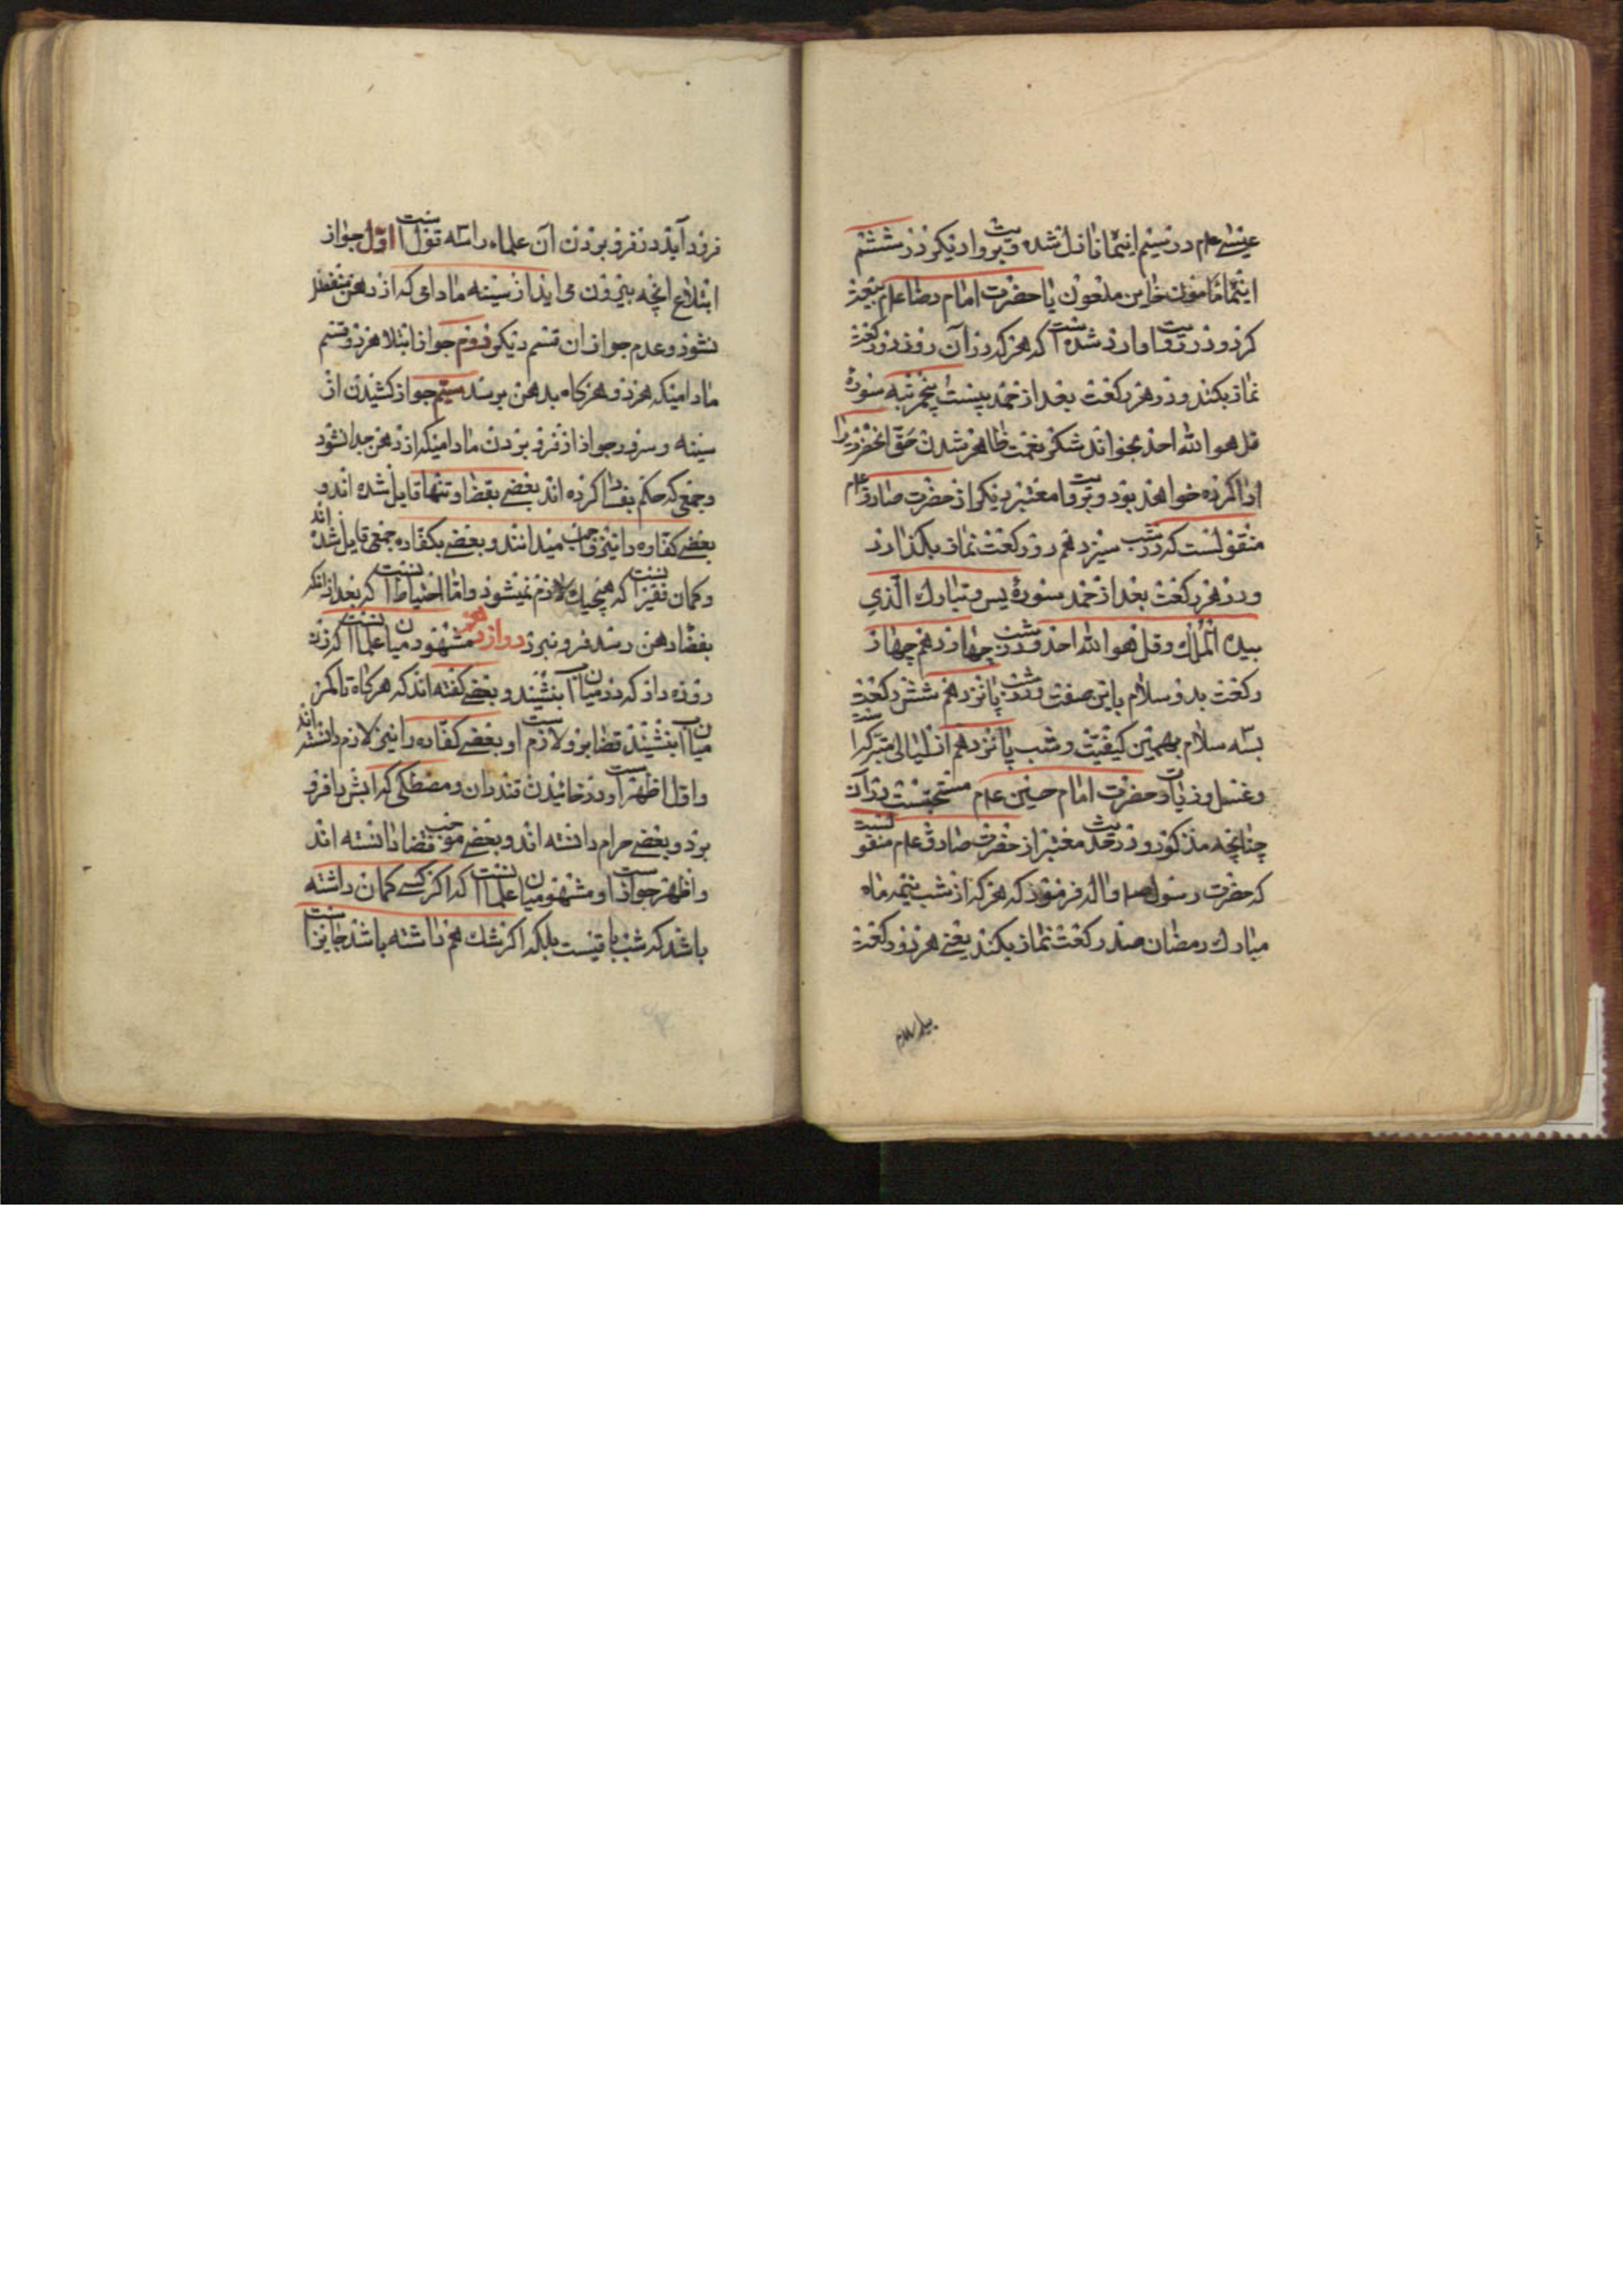 عیسی علم در سیم اینماه نازل شده و بروایت دیکر در ششم
اینماه مامون خاین ملعون با حضرت امام رضا علم بیعت
کرد و در روایت وارد شده است که هر که در آن روز دو رکعت
نماز بکند و در هر رکعت بعد از حمد بیست پنج مرتبه سورهٔ
قل هو الله احد بخواند شکر نعمت ظاهر شدن حق آنحضرت را
ادا کرده خواهد بود و بروایت معتبر دیکر از حضرت صادق علم
منقولست که در شب سیزدهم دو رکعت نماز بگذارد
و در هر رکعت بعد از حمد سورهٔ یس و تبارك الّذی
بیده الملك و قل هو الله احد و در شب چهاردهم چهار
رکعت بدو سلام باین صفت و در شب پانزدهم شش رکعت
بسه سلام بهمین کیفیت و شب پانزدهم از لیالی متبرکه است
و غسل و زیارت حضرت امام حسین علم مستحبست در آن
چنانچه مذکور و در حدیث معتبر از حضرت صادق علم منقولست
که حضرت رسول صلم و اله فرمود که هر که از شب نیمه ماه
مبارك رمضان صد رکعت نماز بکند یعنی هر دو رکعت
فرود آید در فرو بردن آن علماء را سه قول است اوّل جواز
ابتلاع انچه بیرون می آید از سینه مادامی که از دهن منفصل
نشود و عدم جواز ان قسم دیکر دوم جواز ابتلا هر دو قسم
مادامیکه هر دو هرکاه بدهن برسد سیم جواز کشیدن از
سینه و سر و در جواز از فرو بردن مادامیکه از دهن جدا نشود
و جمعی که حکم بفساد کرده اند بعضی بقضا و تنها قایل شده اند و
بعضی کفاره را نیز واجب میدانند و بعضی بکفاره جمعی قایل شده اند
و کمان فقیر انست که هیچیك لازم نمیشود و امّا احتیاط انست که بعد از انکه
بفضاء دهن رسد فرو نبرد دوازدهم مشهور میان علما انست که زن
روزه دار که در میان آب ننشیند و بعضی کفته اند که هرکاه تا کمر
میان اب بنشیند قضا برو لازم است و بعضی کفاره را نیز لازم دانسته اند
و اوّل اظهر است و در خائیدن قندران و مصطکی که ابش با فرو
برد و بعضی حرام دانسته اند و بعضی موجب قضا دانسته اند
و اظهر جواز است و مشهور میان علما انست که اکر کسی کمان داشته
باشد که شب باقیست بلکه اکر شك هم داشته باشد جایز است